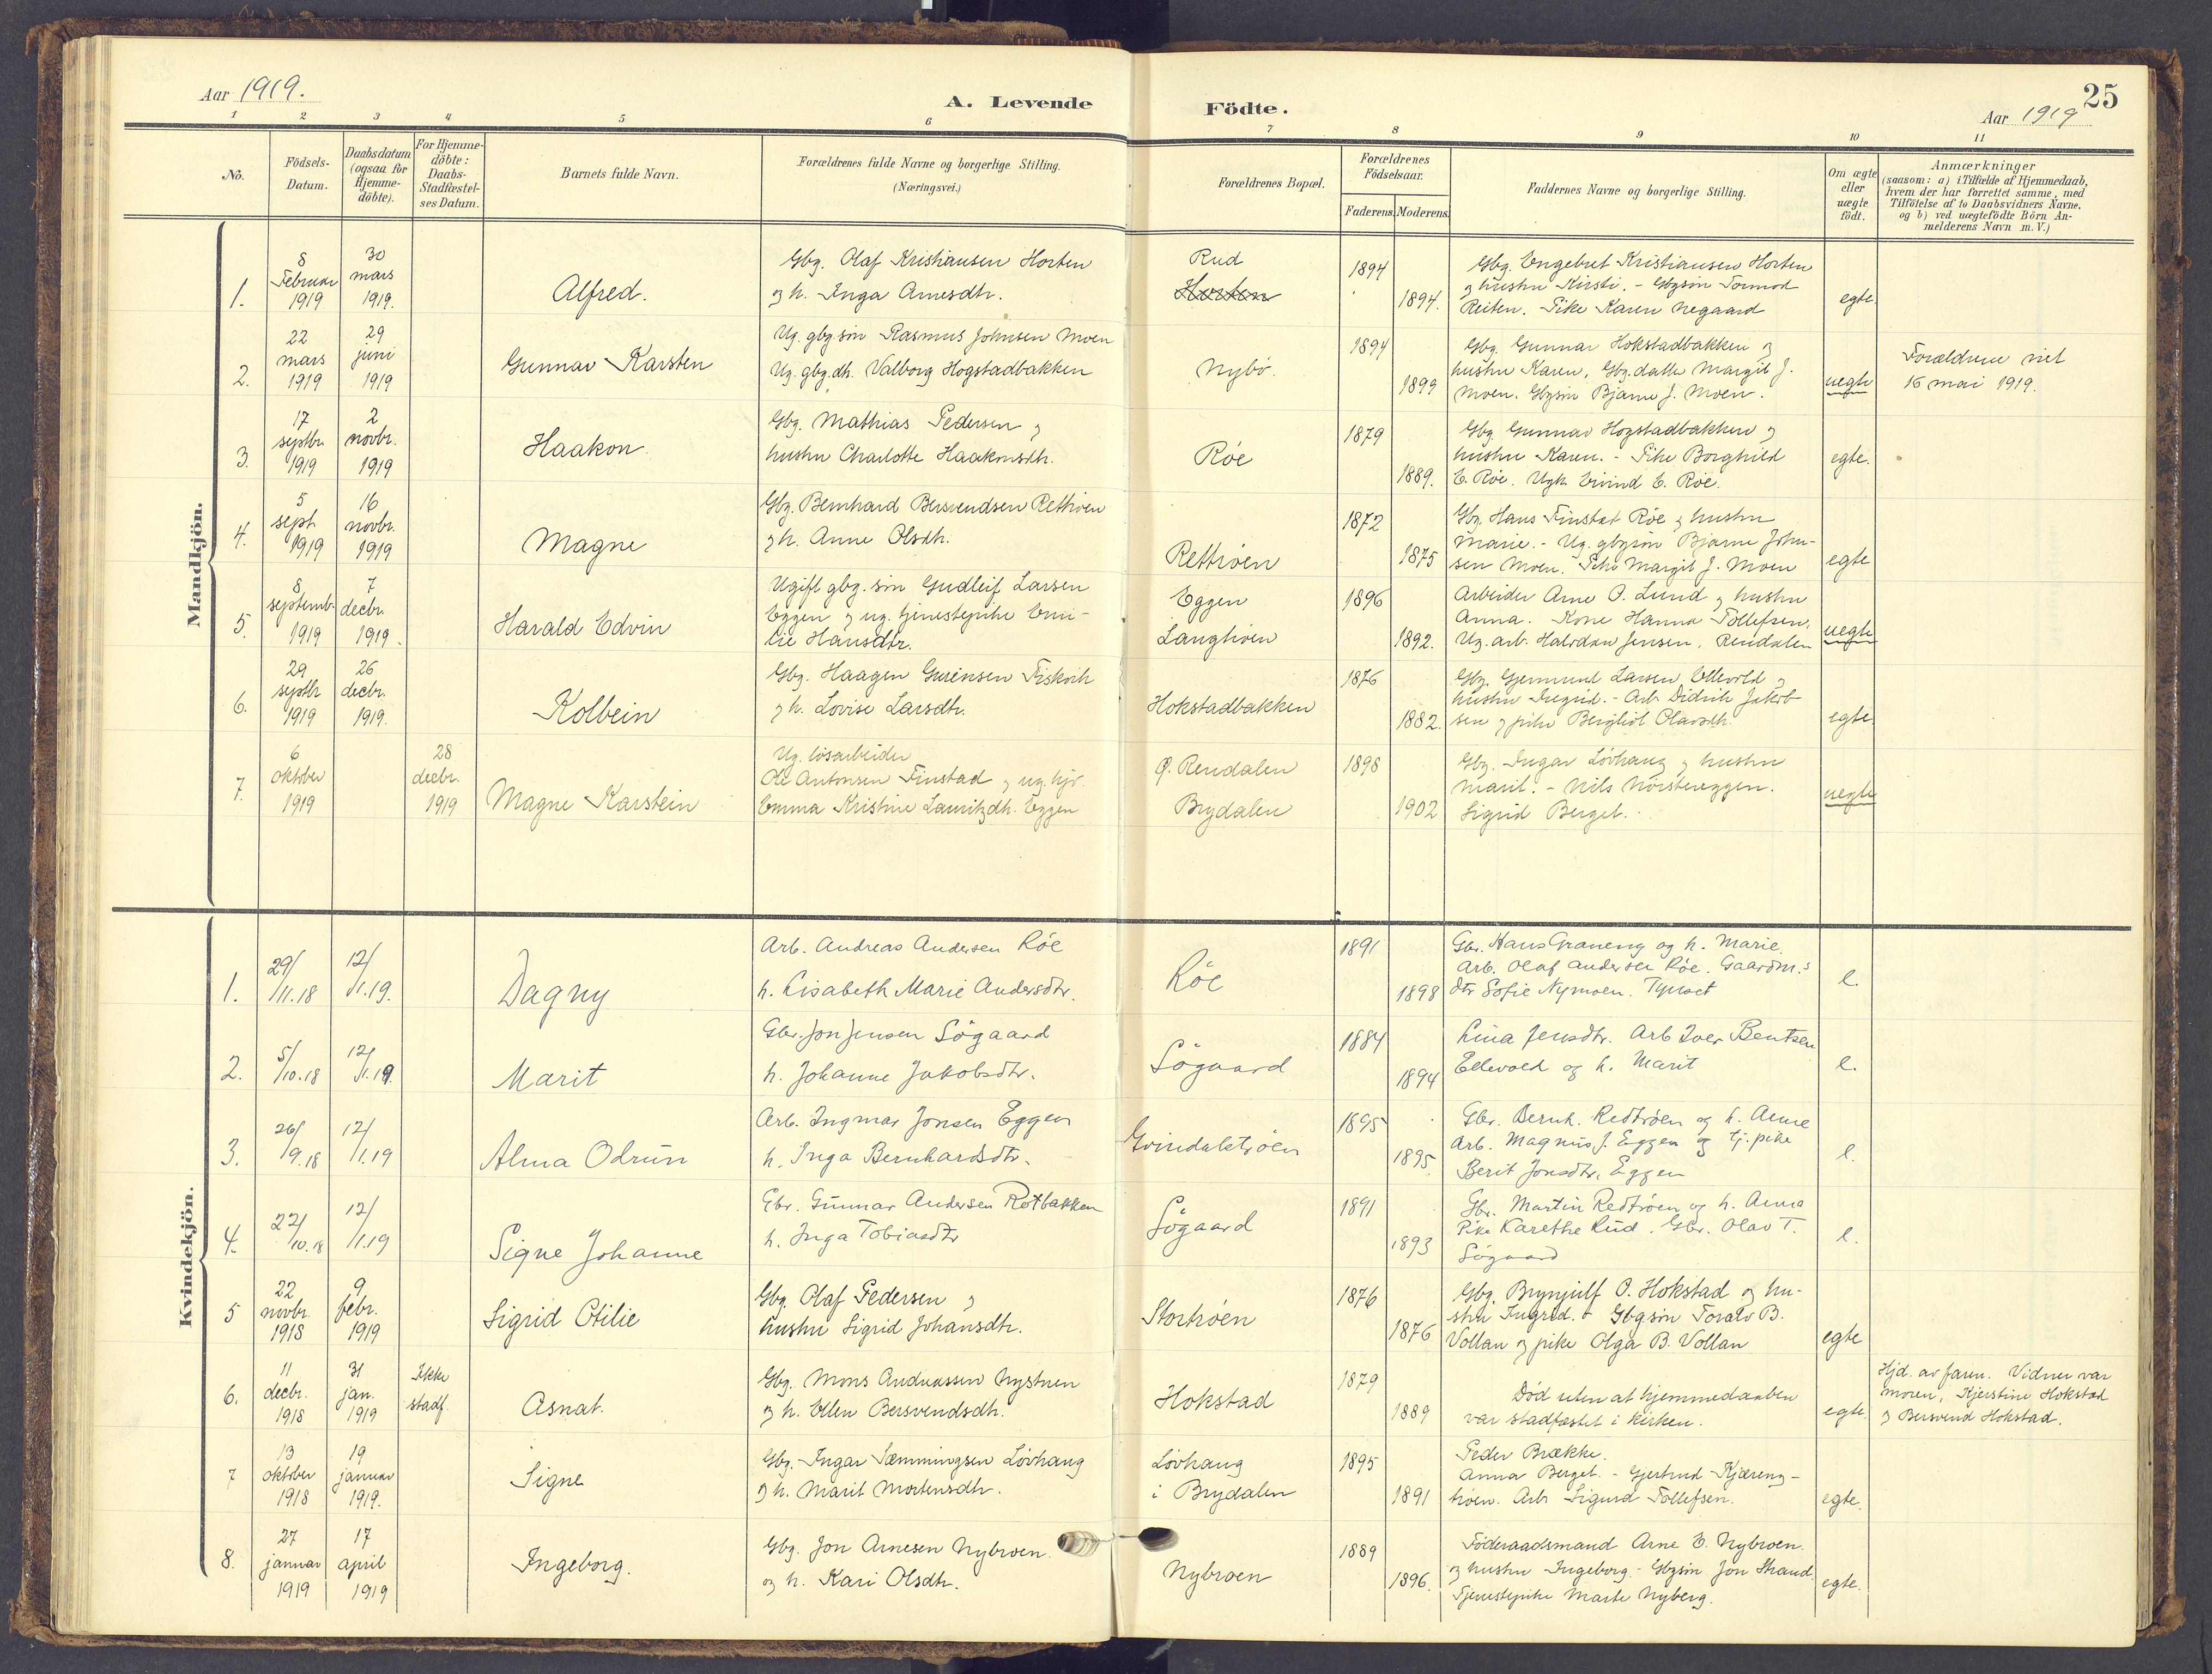 Aar 1919.
A. Levende Födte.
25
Aar 1919
1 2 3 4 5 6 7 8 9 10 11
No.
Födsels-Datum.
Daabsdatum (ogsaa for Hjemme-döbte).
For Hjemme-döbte: Daabs-Stadfæstel-ses Datum.
Barnets fulde Navn.
Forældrenes fulde Navne og borgerlige Stilling.
(Næringsvei.)
Forældrenes Bopæl.
Forældrenes Födselsaar.
Faderens. Moderens.
Faddernes Navne og borgerlige Stilling.
Om ægte eller uægte födt.
Anmærkninger
(saasom: a) i Tilfælde af Hjemmedaab,
hvem der har forrettet samme, med
Tilföielse af to Daabsvidners Navne.
og b) ved uægtefödte Börn An-
melderens Navn m. V.)
Mandkjön.
1.
8 Februar 1919
30 mars 1919.
Alfred.
Gbg. Olaf Kristiansen Horten
og h. Inga Arnesdtr.
Rud
Horten
1894
1894.
Gbg. Engebret Kristiansen Horten
og hustru Kirsti. - Gbgsön Tormod
Reiten. Pike Karen Negaard
egte.
2.
22 mars 1919
29 juni 1919
Gunnar Karsten
Ug. gbg.sön Rasmus Johnsen Moen
Ug. gbg.dtr. Valborg Hogstadbakken
Nybö.
1894
1899
Gbg. Gunnar Hokstadbakken og
hustru Karen, Gbg.datter Margit J.
Moen. Gbgsön Bjarne J. Moen.
uegte
Forældrene viet
16 mai 1919.
3.
17 septbr. 1919
2 novbr. 1919
Haakon.
Gbg. Mathias Pedersen og
hustru Charlotte Haakonsdtr.
Röe
1879
1889.
Gbg. Gunnar Hogstadbakken og
hustru Karen. - Pike Borghild
E. Röe. Ugk. Eivind E. Röe.
egte.
4.
5 sept. 1919
16 novbr. 1919
Magne
Gbg. Bernhard Bersvendsen Rettröen
og h. Anne Olsdtr.
Rettröen
1872
1875
Gbg. Hans Finstad Röe og hustru
Marie. - Ug. gbgsön Bjarne John-
sen Moen. Pike Margit J. Moen
egte
5.
8 septemb. 1919
7 decbr. 1919.
Harald Edvin
Ugift gbg. sön Gudleif Larsen
Eggen og ug. tjenestepike Emi-
lie Hansdtr.
Eggen
Langtröen
1896
1892.
Arbeider Arne O. Lund og hustru
Anna. Kone Hanna Tollefsen.
Ug. arb. Halvdan Jensen, Rendalen
uegte
6.
29 septbr 1919
26 decbr. 1919.
Kolbein
Gbg. Haagen Fiskvik
og h. Lovise Larsdtr.
Hokstadbakken
1876
1882.
Gbg. Gjermund Larsen Ellevold og
hustru Ingrid. - Arb. Didrik Jakob-
sen og pike Bergliot Olavsdtr.
egte
7.
6 oktober 1919
28 decbr. 1919
Magne Karstein
Ug. lösarbeider
Ole Antonsen Finstad og ug. hjv.
Emma Kristine Lauritzdtr. Eggen
Ø. Rendalen
Brydalen
1898
1902
Gbg. Ingar Lövhaug og hustru
Marit. - Nils Nörstereggen.
Sigrid Berget.
uegte
Kvindekjön.
1.
29/11.18
12/1.19.
Dagny
Arb. Andreas Andersen Röe
h. Lisabeth Marie Andersdtr.
Röe
1891
1898
Gbr. Hans Graneng og h. Marie.
Arb. Olaf Andersen Röe. Gaardm.s
dtr Sofie Nymoen. Tynset
e.
2.
5/10.18
12/1.19
Marit
Gbr. Jon Jensen Sögaard
h. Johanne Jakobsdtr.
Sögaard
1884
1894
Lina Jensdtr. Arb Iver Bentsen
Ellevold og h. Marit
e.
3.
26/9.18
12/1.19
Alma Odrun
Arb. Ingmar Jonsen Eggen
h. Inga Bernhardsdtr.
Grindalströen
1895
1895.
Gbr. Bernh. Redtröen og h. Anne
Arb. Magnus J. Eggen og tj. pike
Berit Jonsdtr. Eggen
e.
4.
22/10.18
12/1.19
Signe Johanne
Gbr. Gunnar Andersen Rötbakken
h. Inga Tobiasdtr
Sögaard
1891
1893
Gbr. Martin Redtröen og h. Anna
Pike Karethe Rud. Gbr. Olav T.
Sögaard
e.
5
22 novbr. 1918
9 febr. 1919
Sigrid Otilie
Gbg. Olaf Pedersen og
hustru Sigrid Johansdtr.
Stortröen
1876
1876
Gbg. Brynjulf O. Hokstad og hu-
stru Ingrid. Gbgsön Toralv B.
Vollan og pike Olga B. Vollan
egte
6.
11 decbr. 1918
31 jan. 1919
Ikke stadf.
Asnat.
Gbg. Mons Andreassen Nystuen
og h. Ellen Bersvendsdtr.
Hokstad
1879
1889
Död uten at hjemmedaaben
var stadfæstet i kirken.
egte.
Hjd. av faren. Vidner var
moren, Kjerstine Hokstad
og Bersvend Hokstad.
7
13 oktober 1918
19 januar 1919.
Signe
Gbg. Ingar Sæmmingsen Lövhaug
og h. Marit Mortensdtr.
Lövhaug
i Brydalen
1895
1891
Peder Brække.
Anna Berget. - Gjertrud Kjæreng-
tröen. Arb. Sigurd Tollefsen.
egte.
8.
27 januar 1919
17 april 1919
Ingeborg.
Gbg. Jon Arnesen Nybroen.
og h. Kari Olsdtr.
Nybroen
1889
1896.
Föderaadsmand Arne E. Nybroen.
og hustru Ingeborg - Gbgsön Jon Strand.
Tjenestepike Marte Nyberg.
egte.